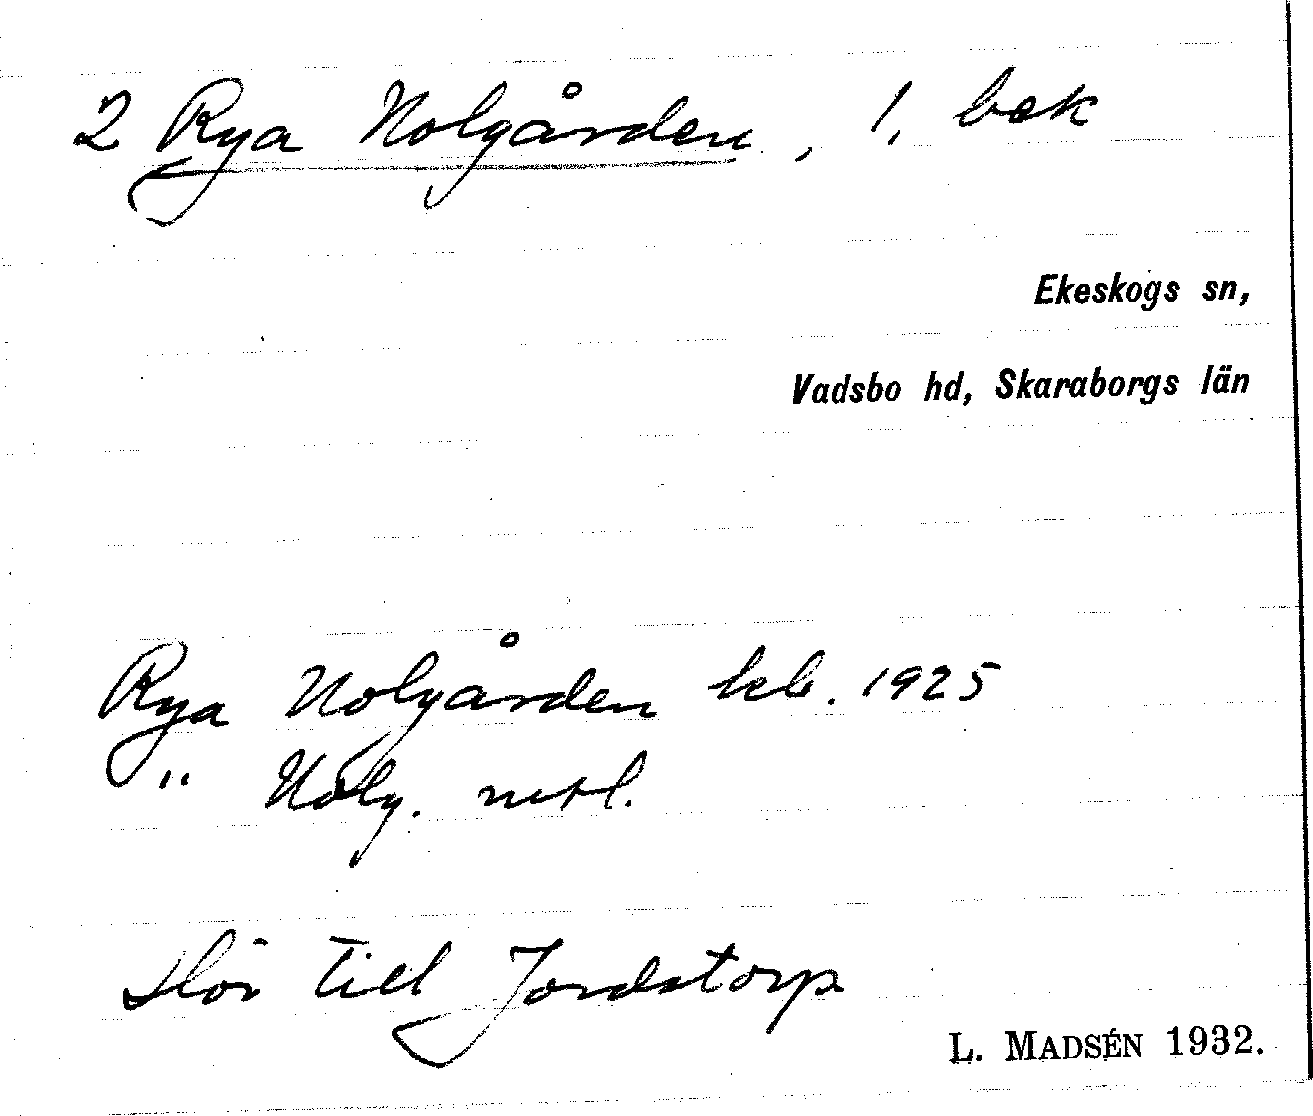 2 Rya Nolgården, 1. bek
Ekeskogs sn,
Vadsbo hd, Skaraborgs län
Rya Nolgården kb. 1925
" Nolg. mtl.
Hör till Jordstorp
L. MADSÉN 1932.